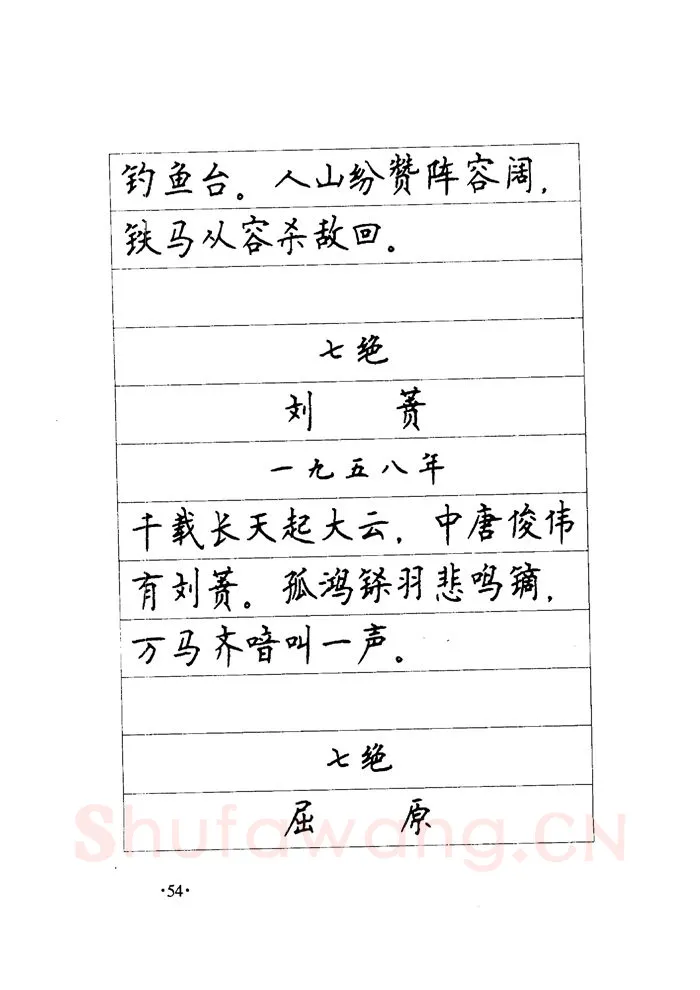 钓鱼台。人山纷赞阵容阔，
铁马从容杀敌回。
七绝
刘　蕡
一九五八年
千载长天起大云，中唐俊伟
有刘蕡。孤鸿铩羽悲鸣镝，
万马齐喑叫一声。
七绝
屈　原
Shufawang.CN
·54·